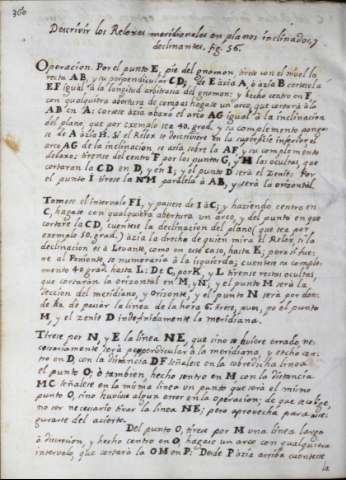 360
Descrivir los Relores meridionales en planos inclinados, y
declinantes. fig. 56.
Operacion. Por el punto E, pie del gnomon tirese con el nivel la
recta AB, y su perpendicular CD; de E azia A, ò azia B cortese la
EF igual à la longitud arbitraria del gnomon: y hecho centro en F
con qualquiera abertura de compas hagase un arco, que cortarà à la
AB en A: cortese azia abaxo el arco AG igual à la inclinacion
del plano, que por exemplo sea 40. grad. y su complemento ponga-
se de A azia H. Si el Relox se descriviere en la superficie inferior, el
arco AG de la inclinacion, se asia sobre la AF, y su complemento
debaxo: tirense del centro F por los puntos G, y H las ocultas, que
cortaran la CD en D, y en I; y el punto D serà el Zenit: Por
el punto I tirese la NM paralela à AB, y serà la orizontal.
Tomese el intervalo FI, y passese de I à C; y haziendo centro en
C, hagase con qualquiera abertura un arco, y del punto en que
cortare la CD, cuentese la declinacion del plano (que sea por
exemplo 50. grad.) azia la direcha de quien mira el Relox, si la
declinacion es à Levante, como en este caso, hasta K; pero si fue-
re al Poniente se numeraria à la izquierda; cuentese su comple-
mento 40. grad. hasta L: De C, por K, y L tirense rectas ocultas,
que cortaràn la orizontal en M, y N, y el punto M serà la
seccion del meridiano, y Orizonte, y el punto N serà por don-
de ha de passar la linea de la hora 6. tirese, pues, por el punto
M, y el zenit D indefinidamente la meridiana.
Tirese por N, y E la linea NE, que sino se huviere errado, ne-
cessariamente serà perpendicular à la meridiana, y hecho cen-
tro en D, con la distancia DF señalese en la sobredicha linea
el punto O; ò tambien, hecho centro en M con la distancia
MC señalese en la misma linea un punto que serà el mismo
punto O, sino huviese algun error en la operacion; de que se colige,
no ser necessario tirar la linea NE; pero aprovecha para asse-
gurarse del acierto.
Del punto O, tirese por M una linea larga
à discrecion, y hecho centro en O, hagase un arco con qualquiera
intervalo, que cortarà la OM en P: Desde P azia arriba cuentese
la